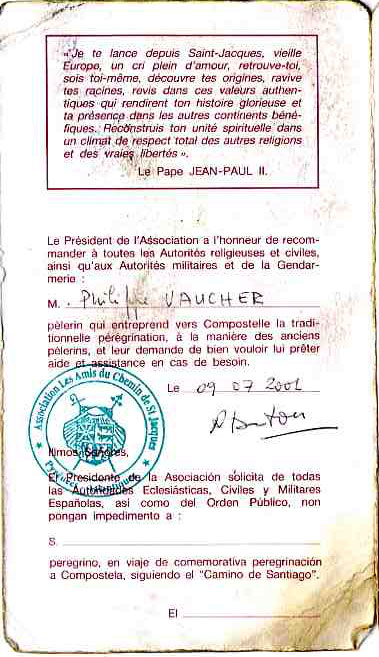 « Je te lance depuis Saint-Jacques, vieille
Europe, un cri plein d'amour, retrouve-toi,
sois toi-même, découvre tes origines, ravive
tes racines, revis dans ces valeurs authen-
tiques qui rendirent ton histoire glorieuse et
ta présence dans les autres continents béné-
fiques. Reconstruis ton unité spirituelle dans
un climat de respect total des autres religions
et des vraies libertés ».
Le Pape JEAN-PAUL II.
Le Président de l'Association a l'honneur de recom-
mander à toutes les Autorités religieuses et civiles,
ainsi qu'aux Autorités militaires et de la Gendar-
merie :
M. Philippe VAUCHER
pèlerin qui entreprend vers Compostelle la tradi-
tionnelle pérégrination, à la manière des anciens
pèlerins, et leur demande de bien vouloir lui prêter
aide et assistance en cas de besoin.
Le 09 07 2001
Association Les Amis du Chemin de St Jacques
Pyrénées Atlantiques
Ilmos Señores,
El Presidente de la Asociación solicita de todas
las Autoridades Eclesiásticas, Civiles y Militares
Españolas, así como del Orden Público, non
pongan impedimento a :
S.
peregrino, en viaje de comemorativa peregrinación
a Compostela, siguiendo el "Camino de Santiago".
El